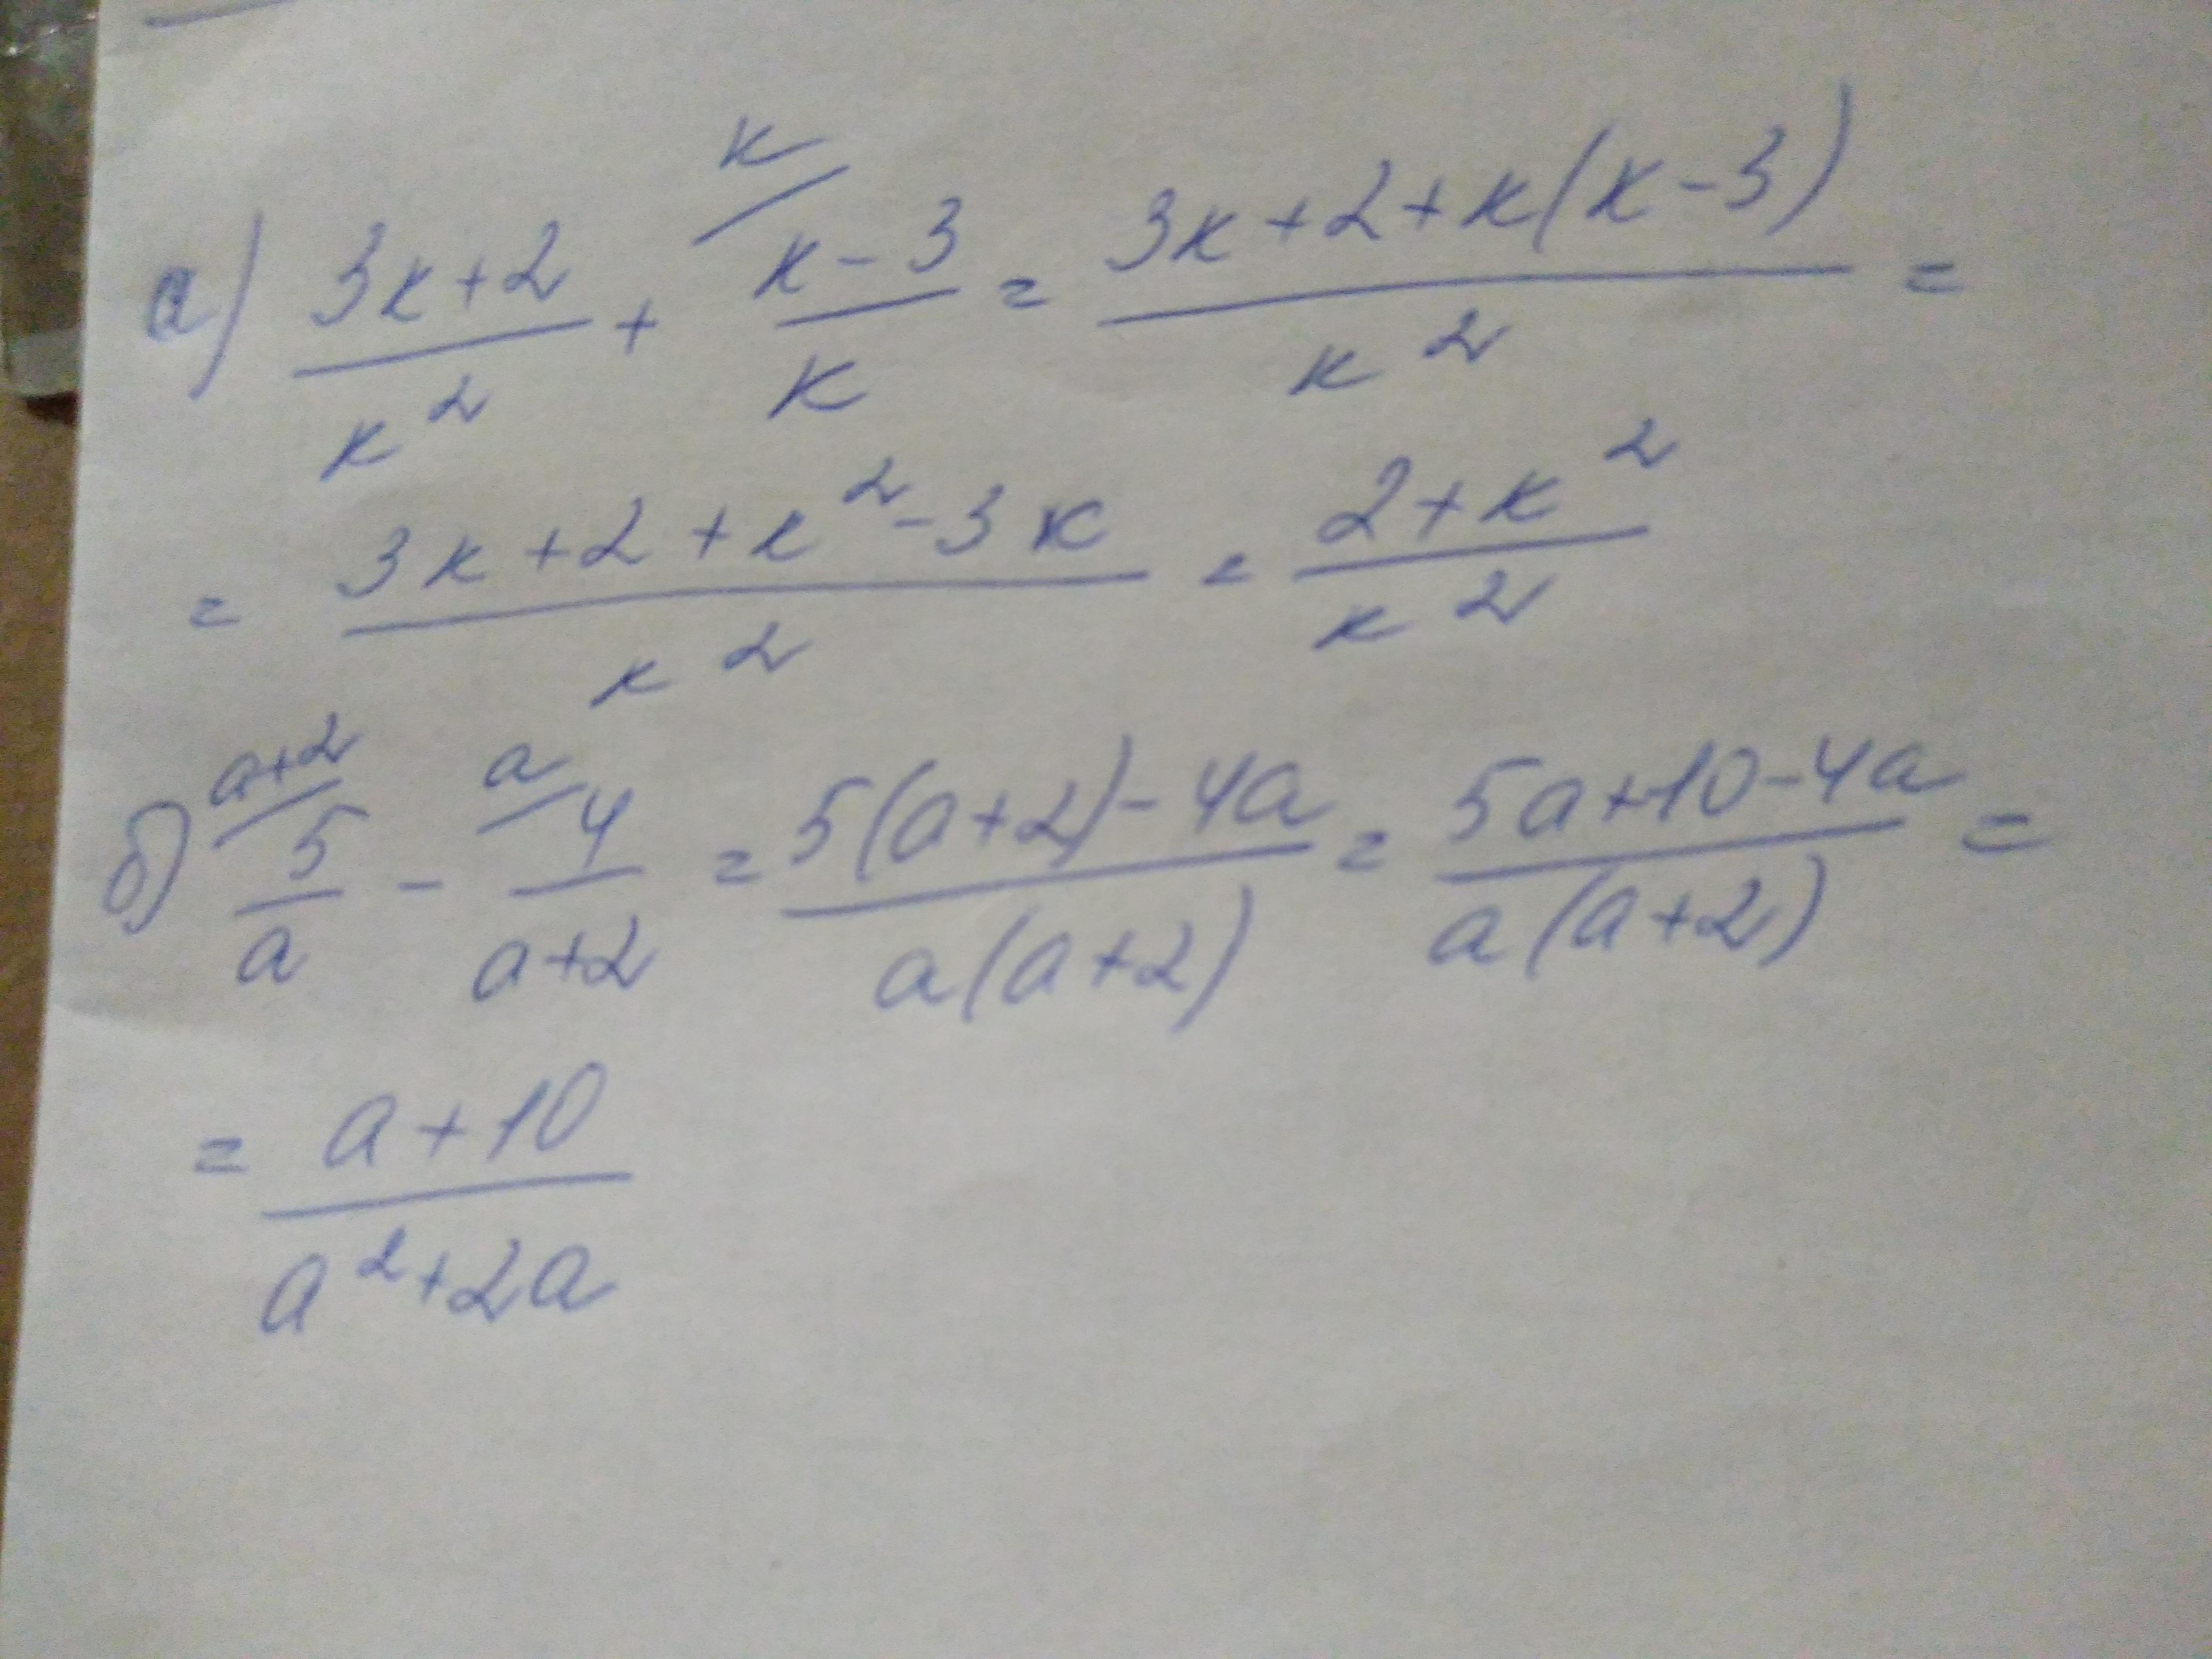 а) \frac{3к+2}{к^2} + \frac{к-3}{к}^{к/} = \frac{3к+2+к(к-3)}{к^2} =
= \frac{3к+2+к^2-3к}{к^2} = \frac{2+к^2}{к^2}
б) ^{а+2/}\frac{5}{а} - ^{а/}\frac{4}{а+2} = \frac{5(а+2)-4а}{а(а+2)} = \frac{5а+10-4а}{а(а+2)} =
= \frac{а+10}{а^2+2а}